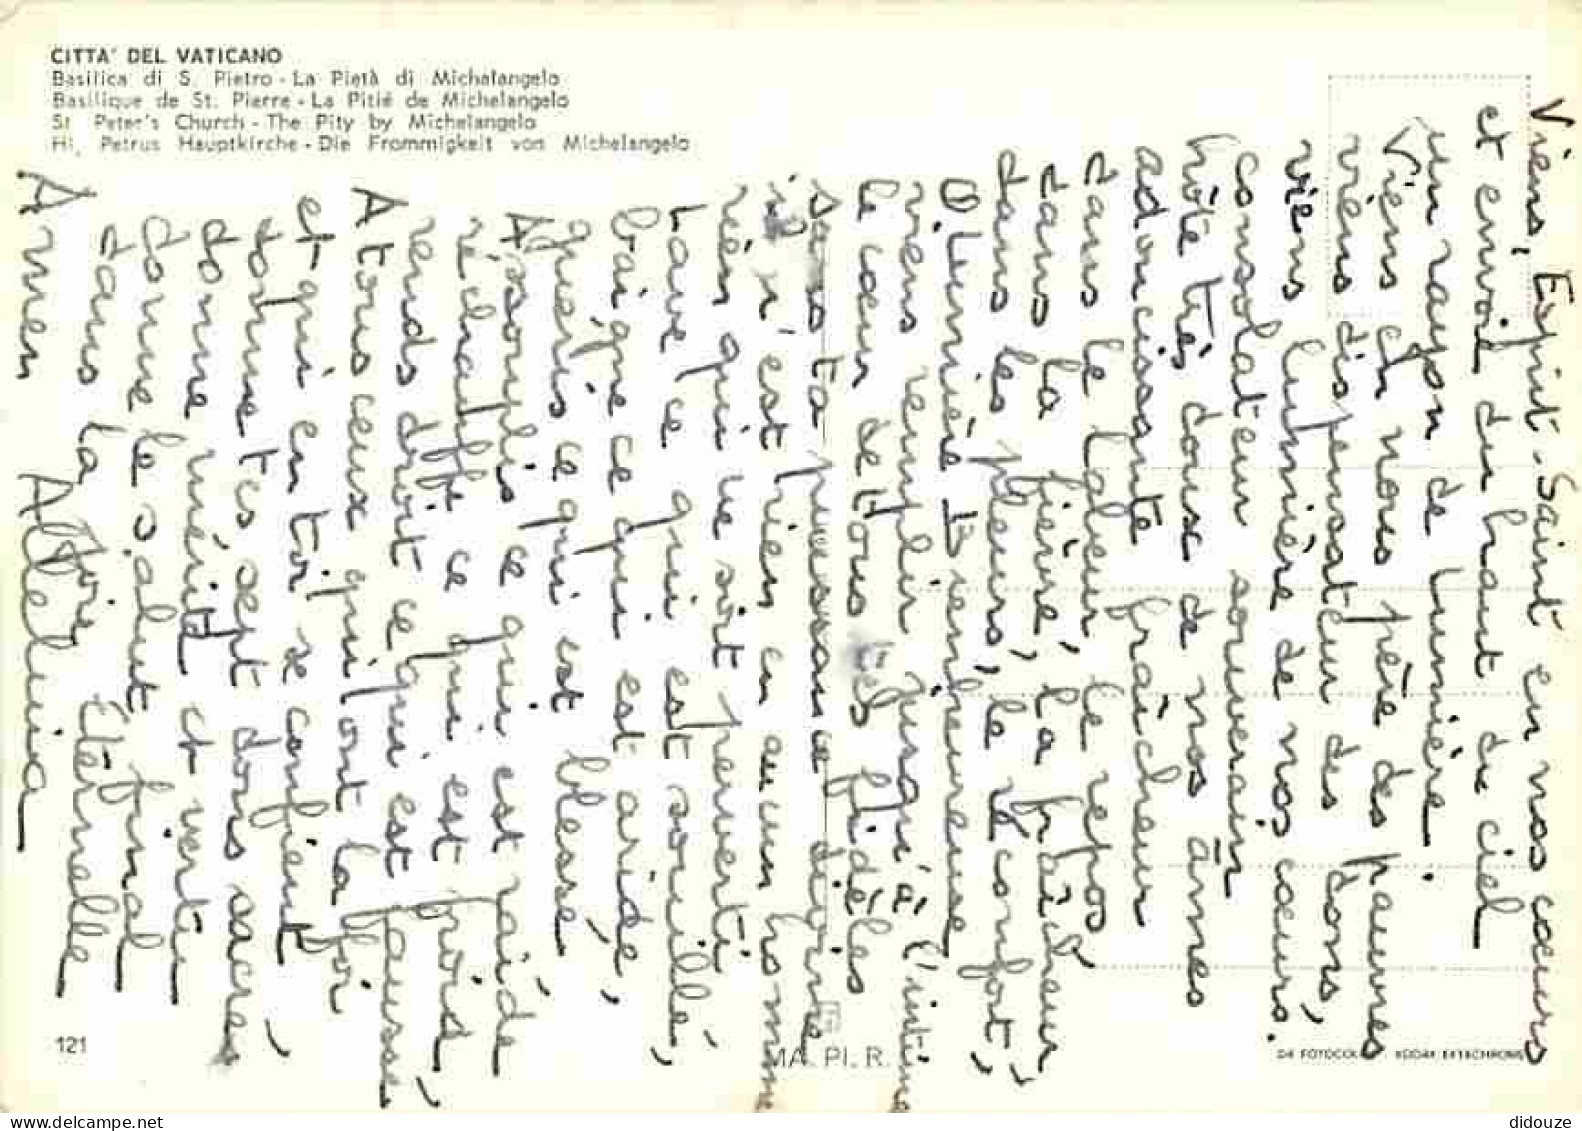 CITTA' DEL VATICANO
Basilica di S. Pietro - La Pietà di Michelangelo
Basilique de St. Pierre - La Pitié de Michelangelo
St Peter's Church - The Pity by Michelangelo
Hl. Petrus Hauptkirche - Die Frommigkeit von Michelangelo
Viens, Esprit-Saint en nos cœurs
et envoie du haut du ciel
un rayon de lumière.
Viens en nous père des pauvres
viens dispensateur des dons,
viens lumière de nos cœurs.
consolateur souverain
hôte très doux de nos âmes
adoucissante fraîcheur
dans le labeur, le repos
dans la fièvre, la fraîcheur
dans les pleurs, le réconfort,
O lumière Bienheureuse
viens remplir jusqu'à l'intime
le cœur de tous tes fidèles
sans ta puissance divine
il n'est rien en aucun homme
rien qui ne soit perverti
Lave ce qui est souillé,
baigne ce qui est aride,
guéris ce qui est blessé
Assouplis ce qui est raide
réchauffe ce qui est froid,
rends droit ce qui est faussé
A tous ceux qui ont la foi
et qui en toi se confient,
donne tes sept dons sacrés
donne mérite et vertu
donne le salut final
dans la joie éternelle
Amen Alleluia
121
MA. PI. R.
DA FOTOCOLOR KODAK EKTACHROME
didouze